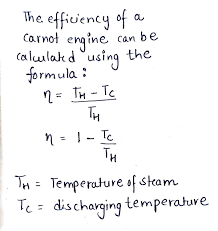 The efficiency of a
carnot engine can be
calculated using the
formula :
η = TH - TC / TH
η = 1 - TC / TH
TH = Temperature of steam
TC = discharging temperature